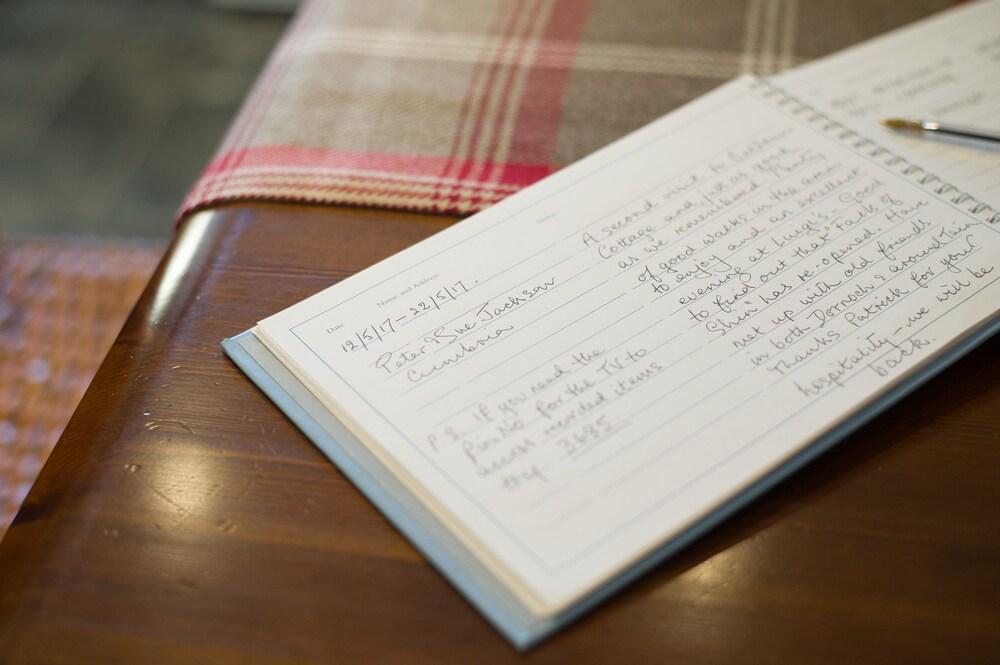 Date
Name and Address
Notes
12/5/17 – 22/5/17.
Peter & Sue Jackson
Cumbria
P.S. If you need the
Pin No for the TV to
access recorded items
try 3685
A second visit to
Cottage and just as good
as we remembered. Plenty
of good walks in the area
to enjoy and an excellent
evening at Luigi's. Good
to find out that "Falls of
Shin" has re-opened. Have
met up with old friends
in both Dornoch & around Tain
Thanks Patrick for your
hospitality – we will be
back.